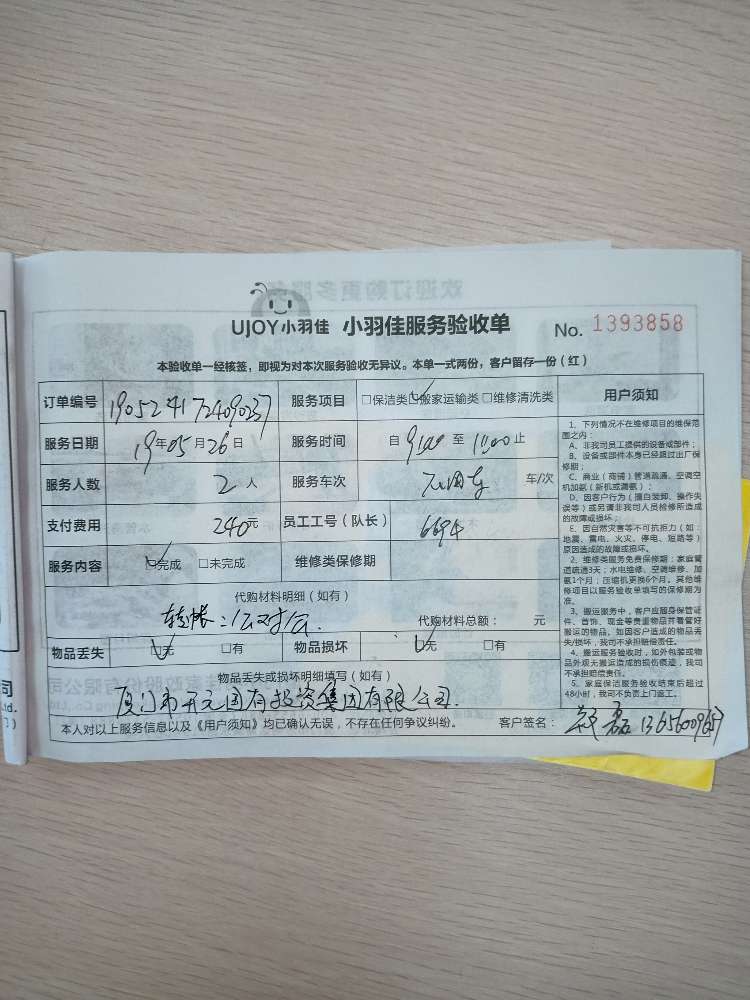 欢迎订购更多服务
UJOY小羽佳 小羽佳服务验收单 No. 1393858
本验收单一经核签，即视为对本次服务验收无异议。本单一式两份，客户留存一份（红）
订单编号 1905241724090237 服务项目 □保洁类☑搬家运输类□维修清洗类 用户须知
服务日期 19年05月26日 服务时间 自 9:00 至 11:00 止
服务人数 2人 服务车次 车/次
支付费用 240元 员工工号（队长） 6694
服务内容 ☑完成 □未完成 维修类保修期
代购材料明细（如有）
转帐：公对公. 代购材料总额： 元
物品丢失 ☑无 □有 物品损坏 ☑无 □有
物品丢失或损坏明细填写（如有）
厦门市开元国有投资集团有限公司.
本人对以上服务信息以及《用户须知》均已确认无误，不存在任何争议纠纷。 客户签名： 磊
1、下列情况不在维修项目的维保范
围之内：
A、非我司员工提供的设备或部件；
B、设备或部件本身已经超过出厂保
修期；
C、商业（商铺）管道疏通、空调空
机加氨（新机或漏氨）；
D、因客户行为（擅自装卸、操作失
误等）或另请非我司人员检修所造成
的故障或损坏；
E、因自然灾害等不可抗拒力（如：
地震、雷电、火灾、停电、短路等）
原因造成的故障或损坏。
2、维修类服务免费保修期：家庭管
道疏通3天；水电维修、空调维修、加
氨1个月；压缩机更换6个月。其他维
修项目以服务验收单填写的保修期为
准。
3、搬运服务中，客户应随身保管证
件、首饰、现金等贵重物品并看管好
搬运的物品。如因客户造成的物品丢
失/损坏，我司不承担赔偿责任。
4、搬运服务验收时，如外包装或物
品外观无搬运造成的损伤痕迹，我司
不承担赔偿责任。
5、家庭保洁服务验收结束后超过
48小时，我司不负责上门返工。